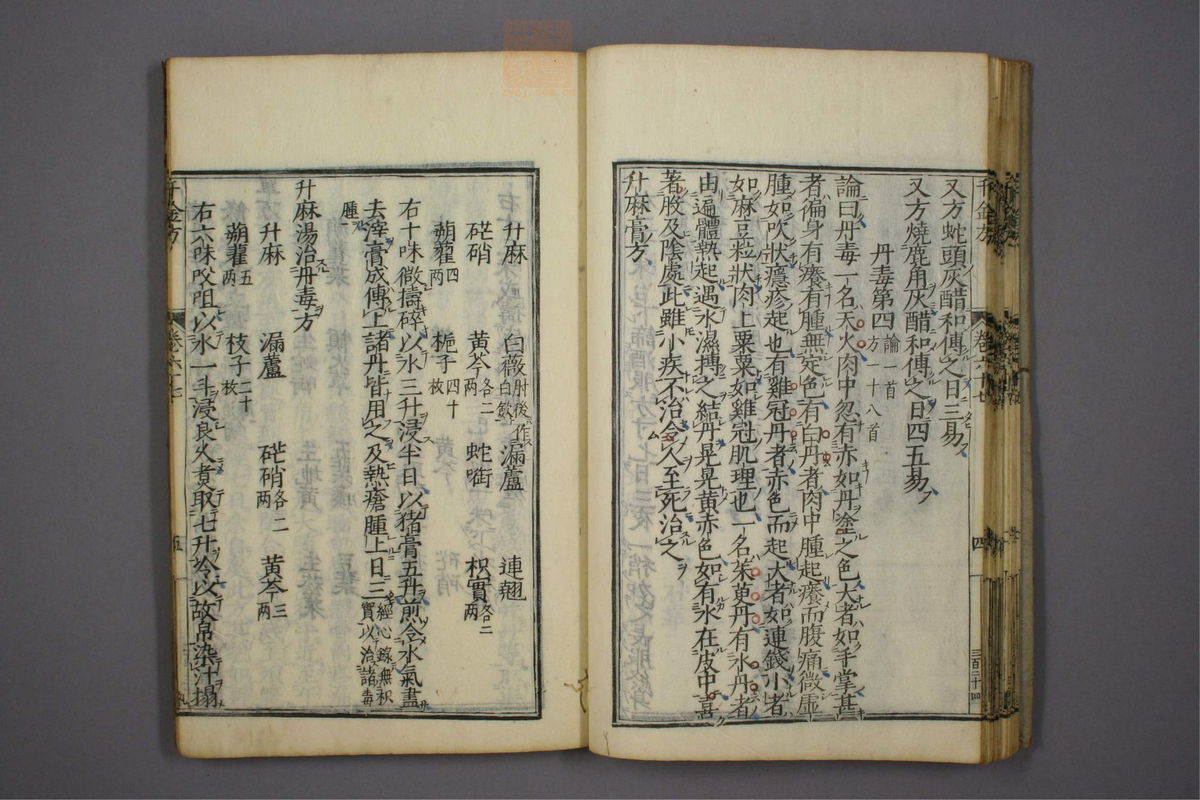 千金方　卷六十七　四
又方蛇頭灰醋和傅之日三易
又方燒鹿角灰醋和傅之日四五易
丹毒第四論一首方一十八首
論曰丹毒一名天火肉中忽有赤如丹塗之色大者如手掌甚
者徧身有癢有腫無定色有白丹者肉中腫起癢而腹痛微虛
腫如吹狀癮疹起也有雞冠丹者赤色而起大者如連錢小者
如麻豆粒狀肉上粟粟如雞冠肌理也一名茱萸丹有水丹者
由遍體熱起遇水濕搏之結丹晃晃黃赤色如有水在皮中喜
著股及陰處此雖小疾不治令人至死治之
升麻膏方
升麻　白薇肘後作白斂　漏蘆　連翹
硭硝　黃芩各二兩　蛇銜　枳實各三兩
蒴藋四兩　梔子四十枚
右十味微擣碎以水三升浸半日以猪膏五升煎令水氣盡
去滓膏成傅上諸丹皆用之及熱瘡腫上日三經心錄無枳實以治諸毒
腫
升麻湯治丹毒方
升麻　漏蘆　硭硝各二兩　黃芩三兩
蒴藋五兩　梔子二十枚
右六味㕮咀以水一斗浸良久煮取七升冷以故帛染汁搨
千金方　卷六十七　五